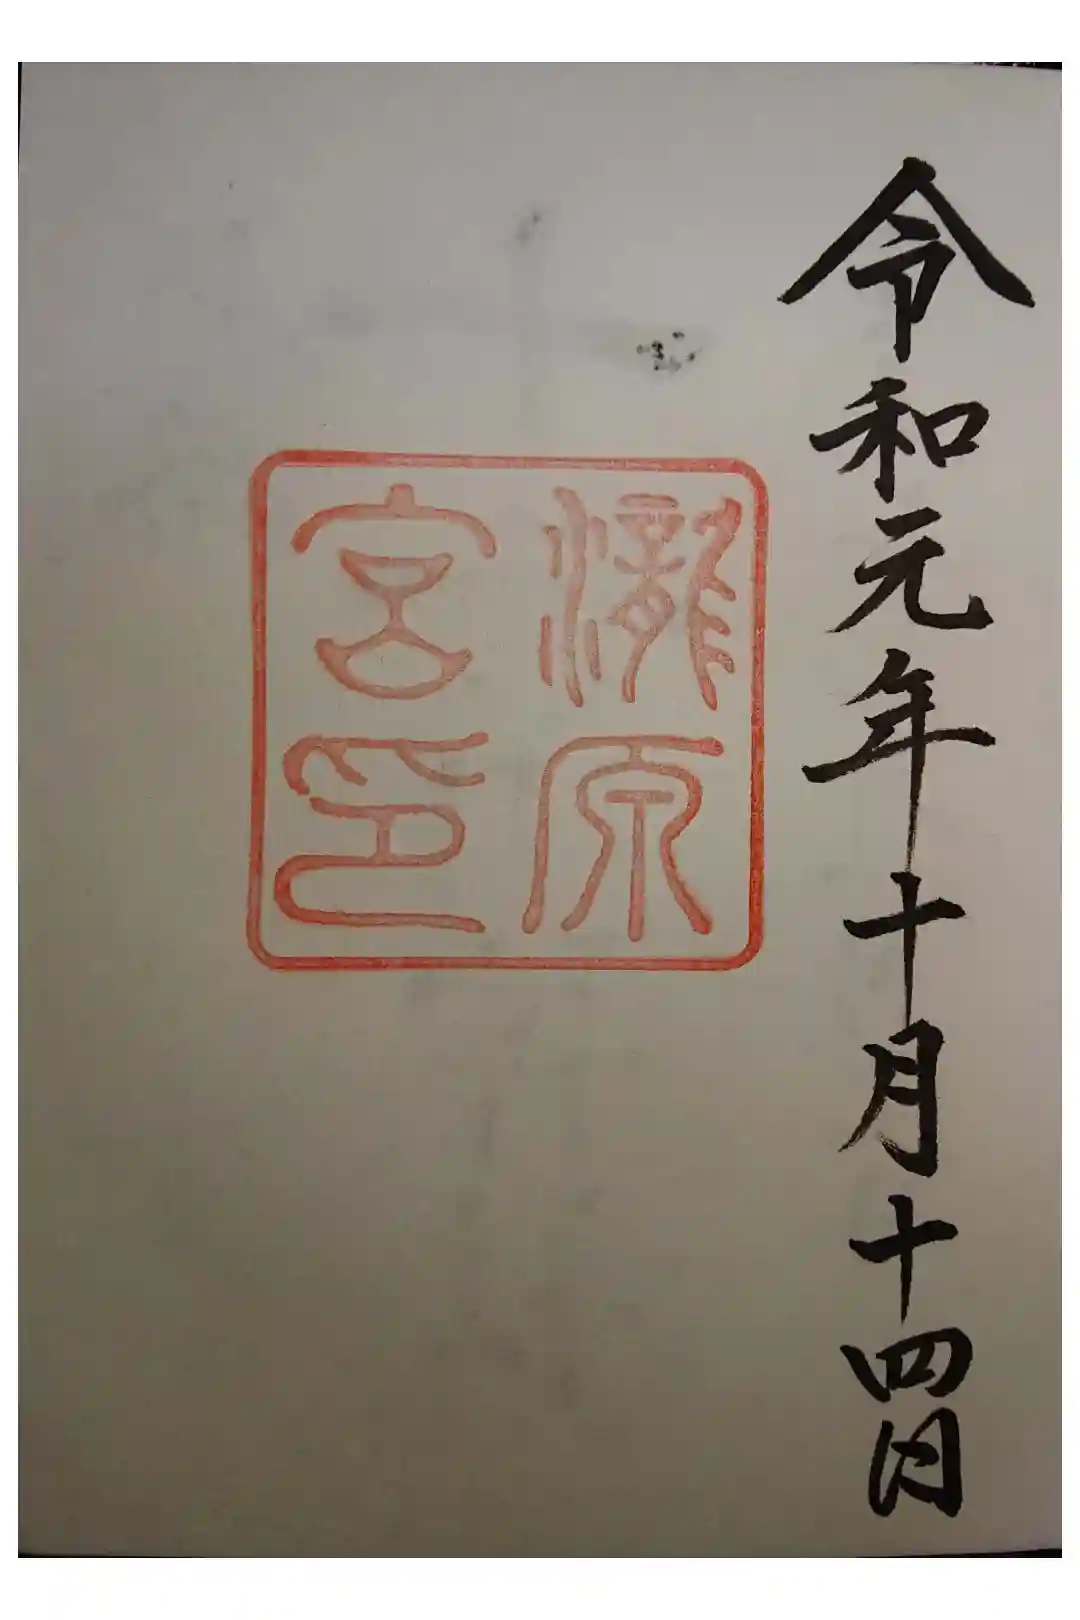 令和元年十月十四日
瀧原
宮印